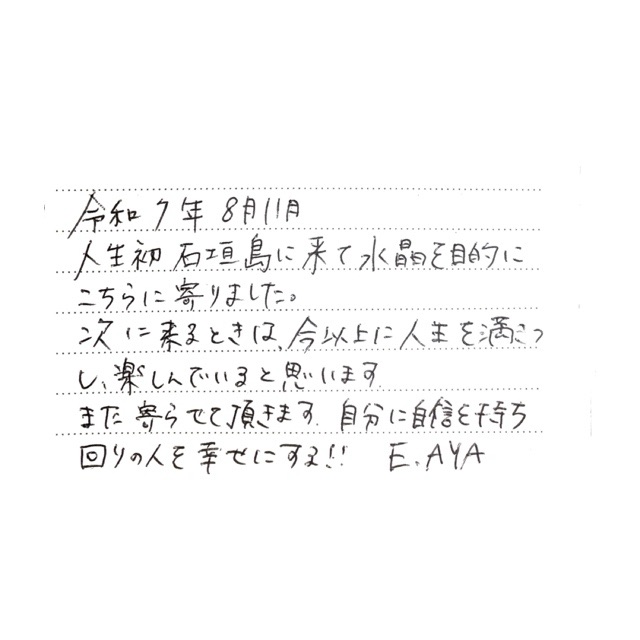 令和7年 8月11月
人生初 石垣島に来て水晶を目的に
こちらに寄りました。
次に来るときは、今以上に人生を満きつ
し、楽しんでいると思います
また寄らせて頂きます 自分に自信を持ち
回りの人を幸せにする!! E.AYA